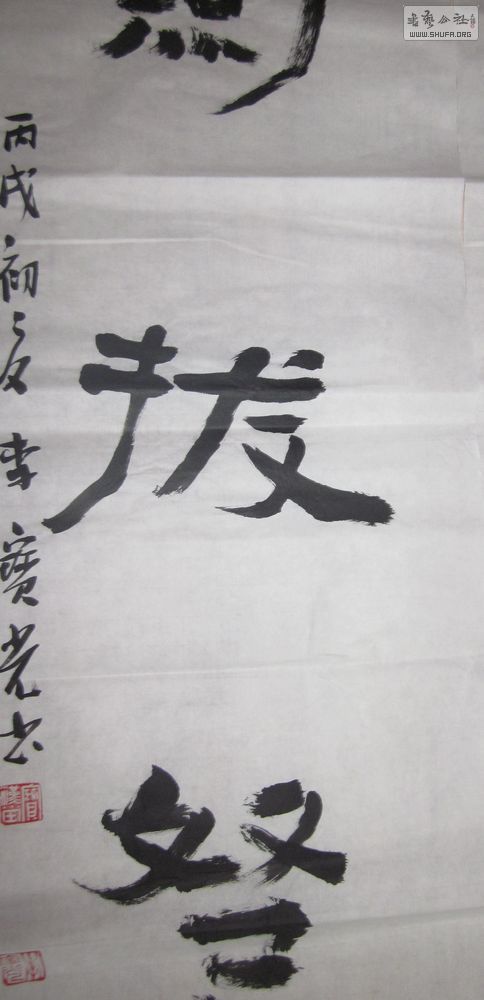 書藝公社
WWW.SHUFA.ORG
拔弩
丙戌初夏李寶光书